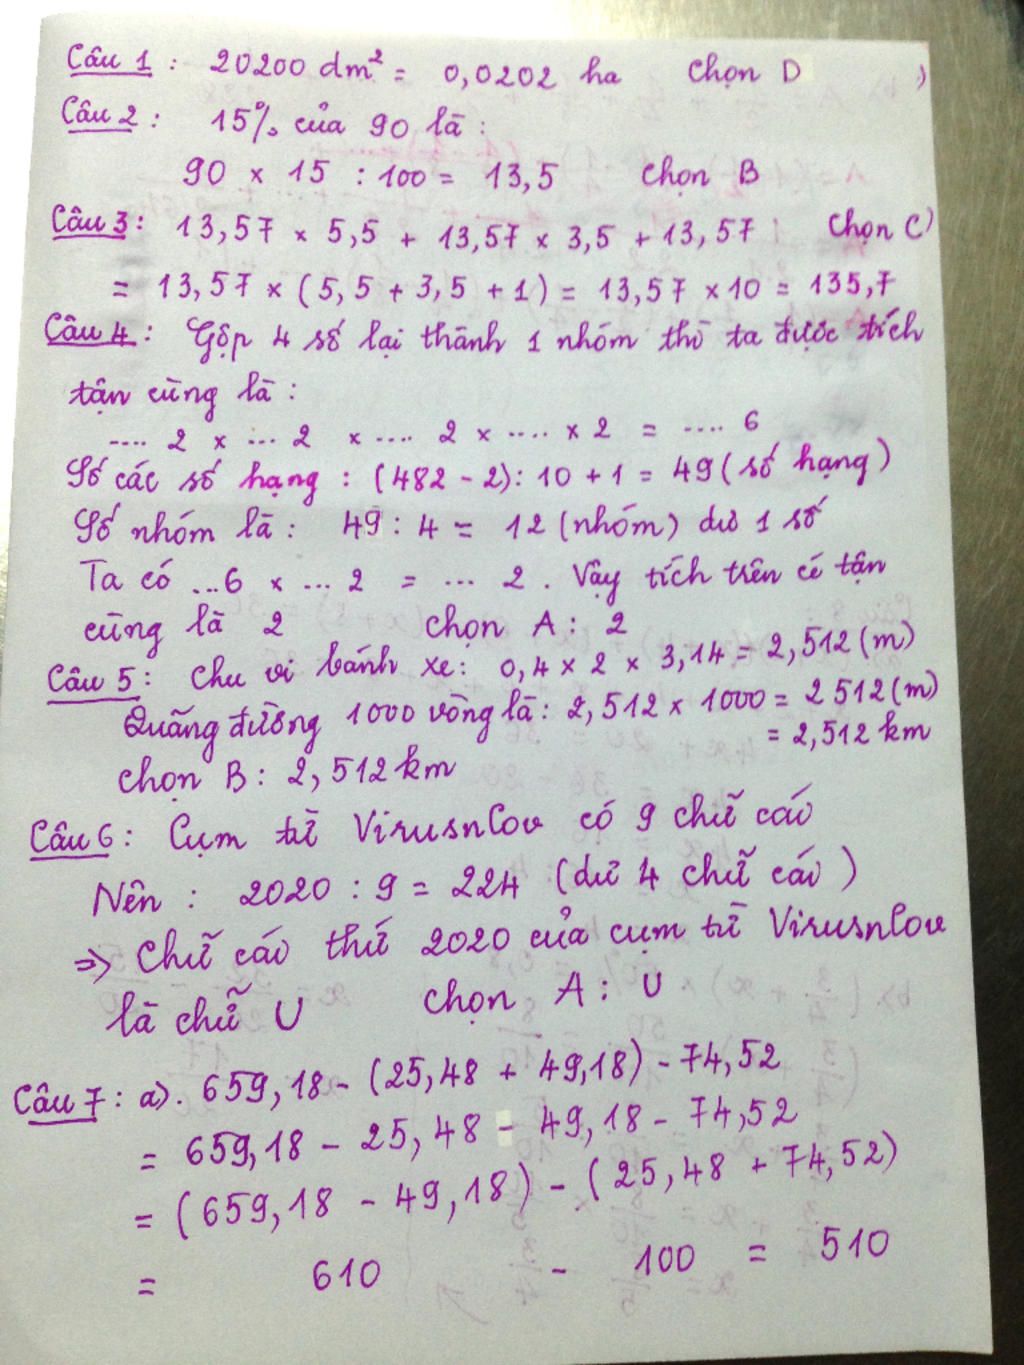 Câu 1 : 20200 dm² = 0,0202 ha chọn D
Câu 2 : 15% của 90 là :
90 × 15 : 100 = 13,5 chọn B
Câu 3 : 13,57 × 5,5 + 13,57 × 3,5 + 13,57 chọn C
= 13,57 × (5,5 + 3,5 + 1) = 13,57 × 10 = 135,7
Câu 4 : Gộp 4 số lại thành 1 nhóm thì ta được tích
tận cùng là :
.... 2 × ... 2 × .... 2 × .... × 2 = .... 6
Số các số hạng : (482 - 2) : 10 + 1 = 49 (số hạng)
Số nhóm là : 49 : 4 = 12 (nhóm) dư 1 số
Ta có ...6 × ... 2 = ... 2 . Vậy tích trên có tận
cùng là 2 chọn A : 2
Câu 5 : Chu vi bánh xe : 0,4 × 2 × 3,14 = 2,512 (m)
Quãng đường 1000 vòng là : 2,512 × 1000 = 2 512 (m)
= 2,512 km
chọn B : 2,512 km
Câu 6 : Cụm từ VirusnCov có 9 chữ cái
Nên : 2020 : 9 = 224 (dư 4 chữ cái)
=> Chữ cái thứ 2020 của cụm từ VirusnCov
là chữ U chọn A : U
Câu 7 : a). 659,18 - (25,48 + 49,18) - 74,52
= 659,18 - 25,48 - 49,18 - 74,52
= (659,18 - 49,18) - (25,48 + 74,52)
= 610 - 100 = 510